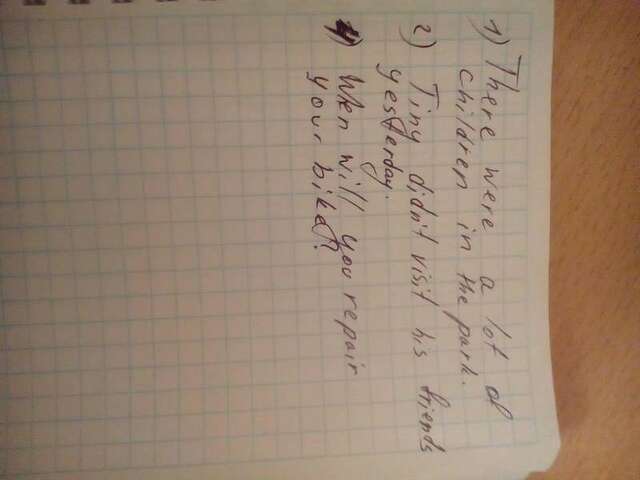 1) There were a lot of
children in the park.
2) Tiny didn't visit his friends
yesterday.
4) When will you repair
your bike?